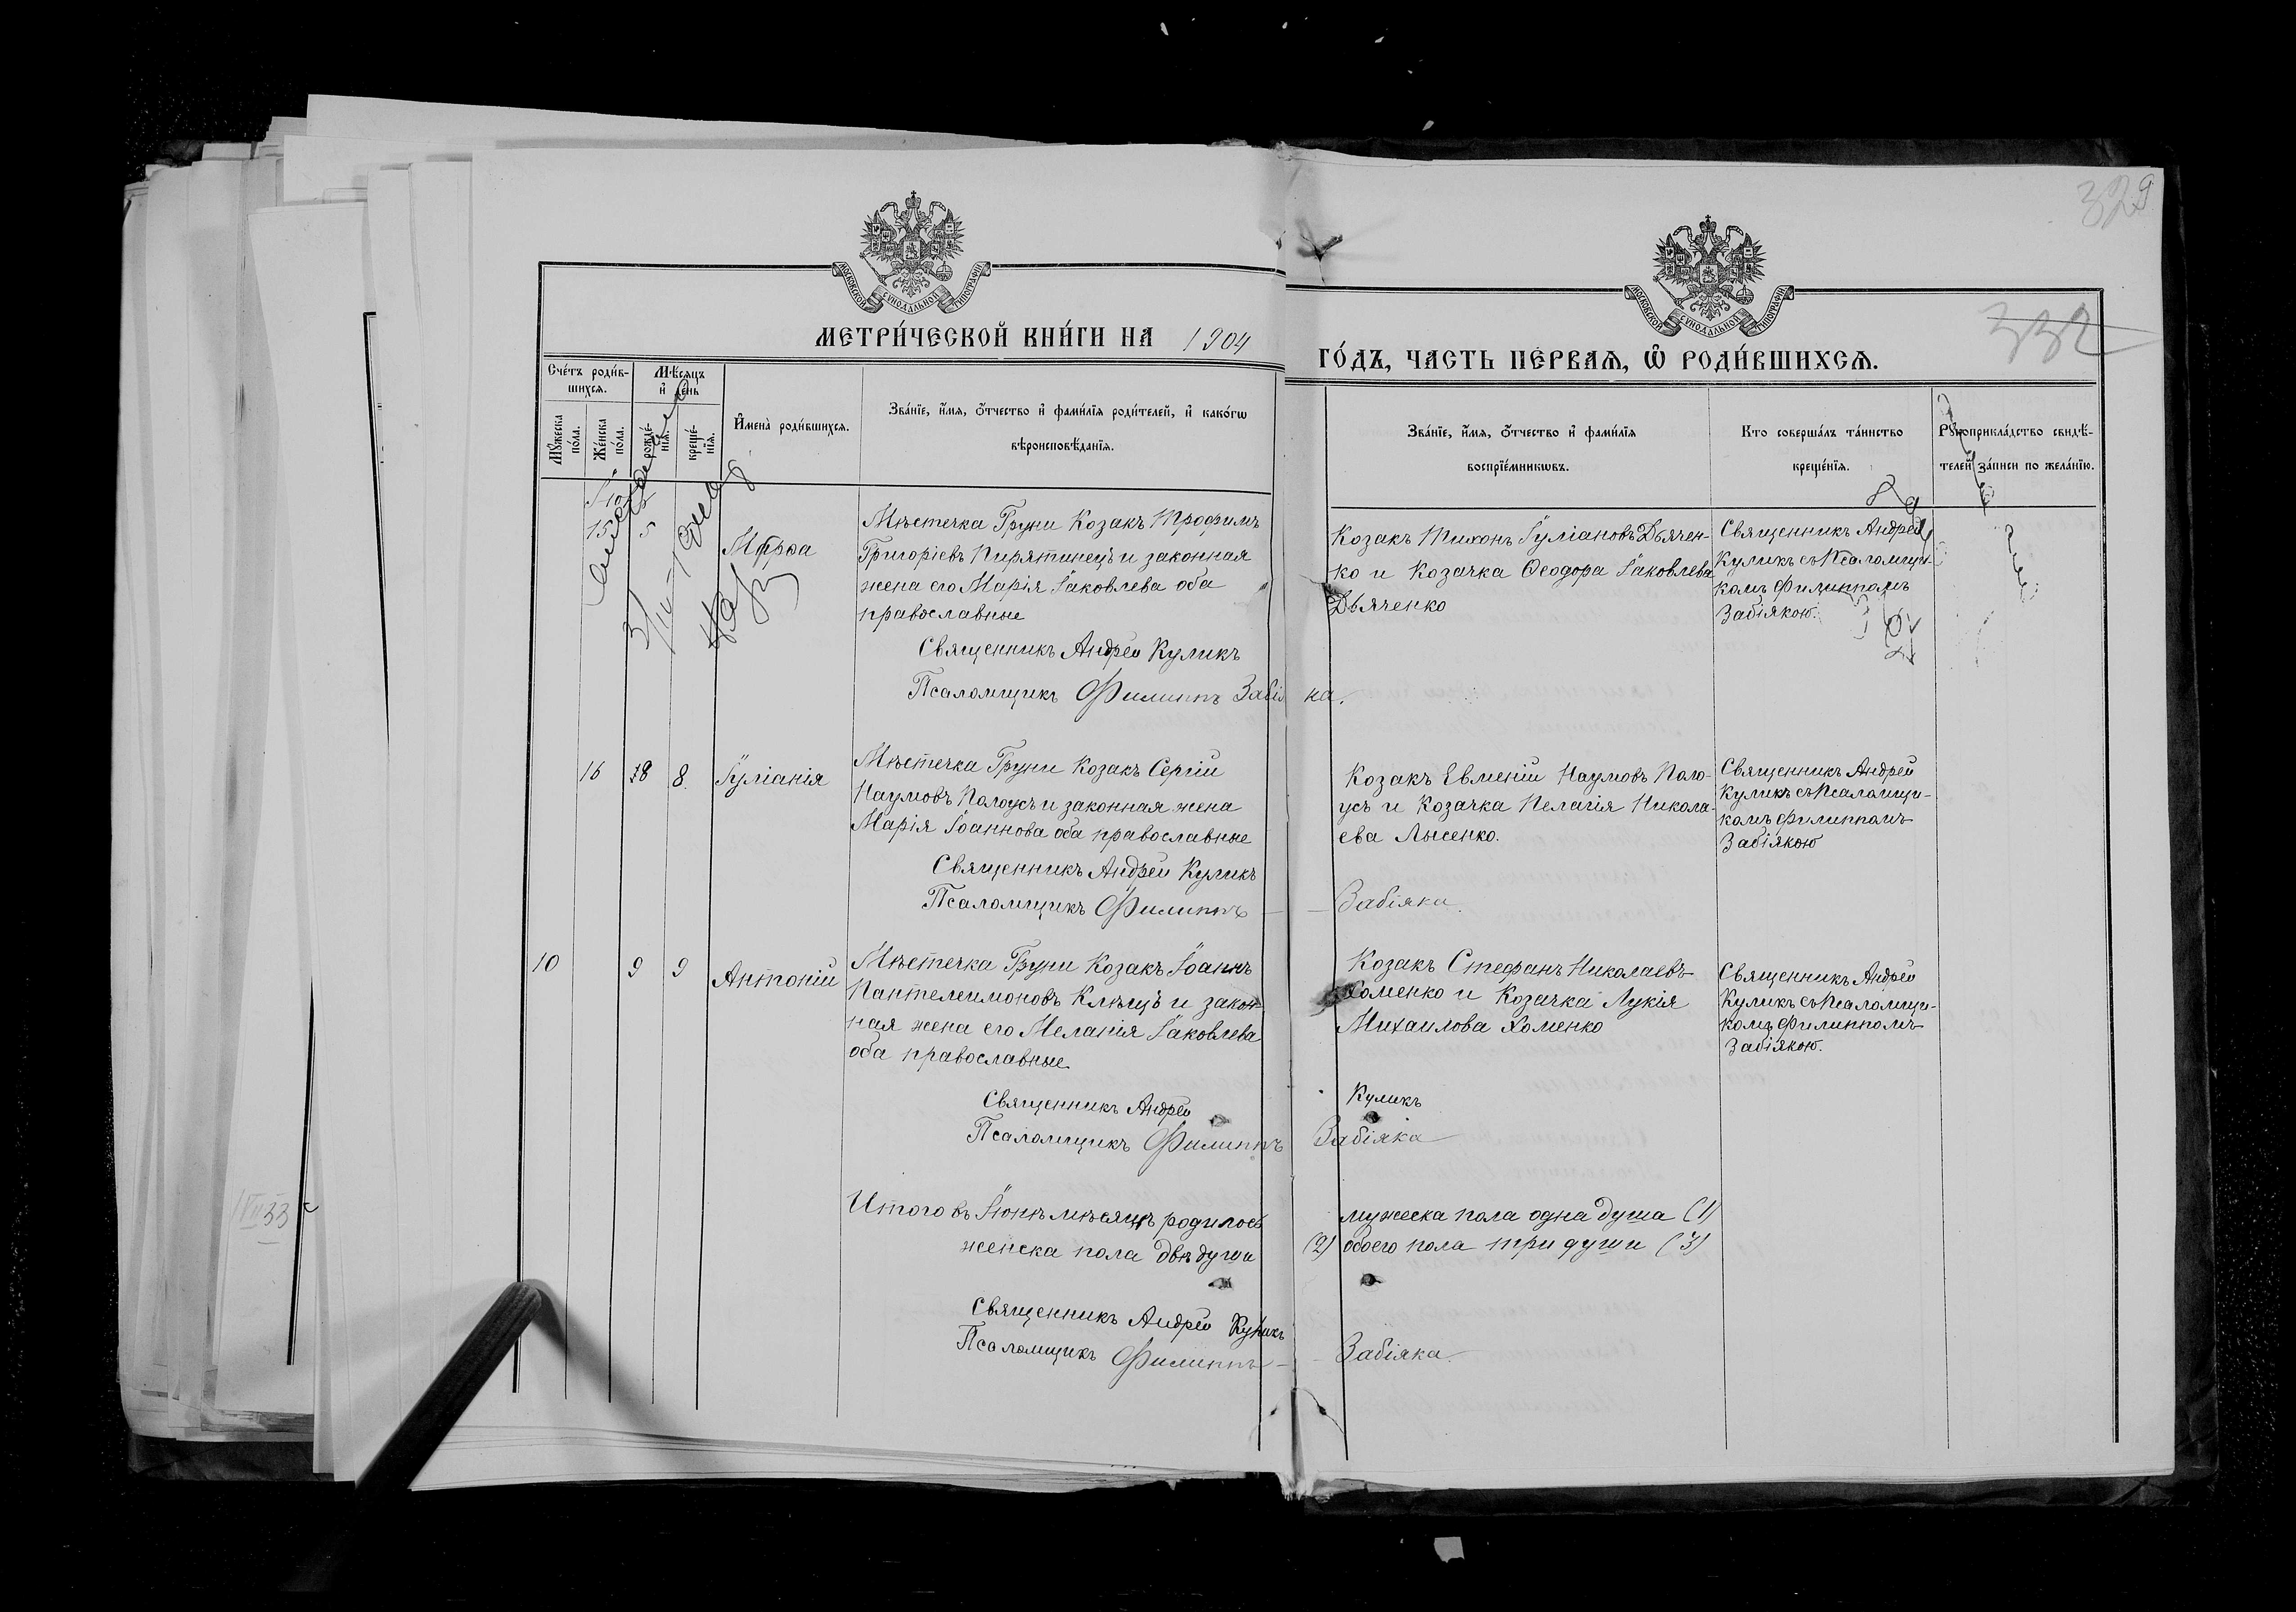 329
МОСКОВСКОЙ СУНОДАЛЬНОЙ ТИПОГРАФІИ
МОСКОВСКОЙ СУНОДАЛЬНОЙ ТИПОГРАФІИ
332
МЕТРИ́ЧЕСКОЙ КНИ́ГИ НА 1904
ГО́ДЪ, ЧАСТЬ ПЕ́РВАѦ, Ѿ РОДИ́ВШИХСѦ.
Сче́тъ роди́в-
шихсѧ.
Мѣ́сѧцъ
и҆ де́нь
Мꙋ́жеска
по́ла.
Же́нска
по́ла.
рожде́-
нїѧ.
креще́-
нїѧ.
И҆мена̀ роди́вшихсѧ.
Зва́нїе, и҆́мѧ, ѻ҆́тчество и҆ фами́лїѧ роди́телей, и҆ како́гѡ
вѣроисповѣ́данїѧ.
Зва́нїе, и҆́мѧ, ѻ҆́тчество и҆ фами́лїѧ
воспрїе́мникѡвъ.
Кто соверша́лъ та́инство
креще́нїѧ.
Рꙋкоприкла́дство свидѣ́-
телей за́писи по жела́нїю.
15 5
Марѳа
Мѣстечка Груни Козакъ Трофимъ
Григоріевъ Пирятинецъ и законная
жена его Марія Іаковлева оба
православные
Священникъ Андрей Куликъ
Псаломщикъ Филиппъ Забіяка.
Козакъ Тихонъ Іуліановъ Дьячен-
ко и Козачка Ѳеодора Іаковлева
Дьяченко
Священникъ Андрей
Куликъ съ Псаломщи-
комъ Филиппомъ
Забіякою.
16 8 8. Іуліанія
Мѣстечка Груни Козакъ Сергій
Наумовъ Полоусъ и законная жена
Марія Іоаннова оба православные
Священникъ Андрей Куликъ
Псаломщикъ Филиппъ — Забіяка.
Козакъ Евменій Наумовъ Поло-
усъ и Козачка Пелагія Никола-
ева Лысенко.
Священникъ Андрей
Куликъ съ Псаломщи-
комъ Филиппомъ
Забіякою
10 9 9 Антоній
Мѣстечка Груни Козакъ Іоаннъ
Пантелеимоновъ Клѣщъ и закон-
ная жена его Меланія Іаковлева
оба православные
Священникъ Андрей Куликъ
Псаломщикъ Филиппъ Забіяка
Козакъ Стефанъ Николаевъ
Хоменко и Козачка Лукія
Михаилова Хоменко
Священникъ Андрей
Куликъ съ Псаломщи-
комъ Филиппомъ
Забіякою.
Итого въ Іюнѣ мѣсяцѣ родилось мужеска пола одна душа (1)
женска пола двѣ души (2) обоего пола три души (3)
Священникъ Андрей Куликъ
Псаломщикъ Филиппъ — Забіяка.